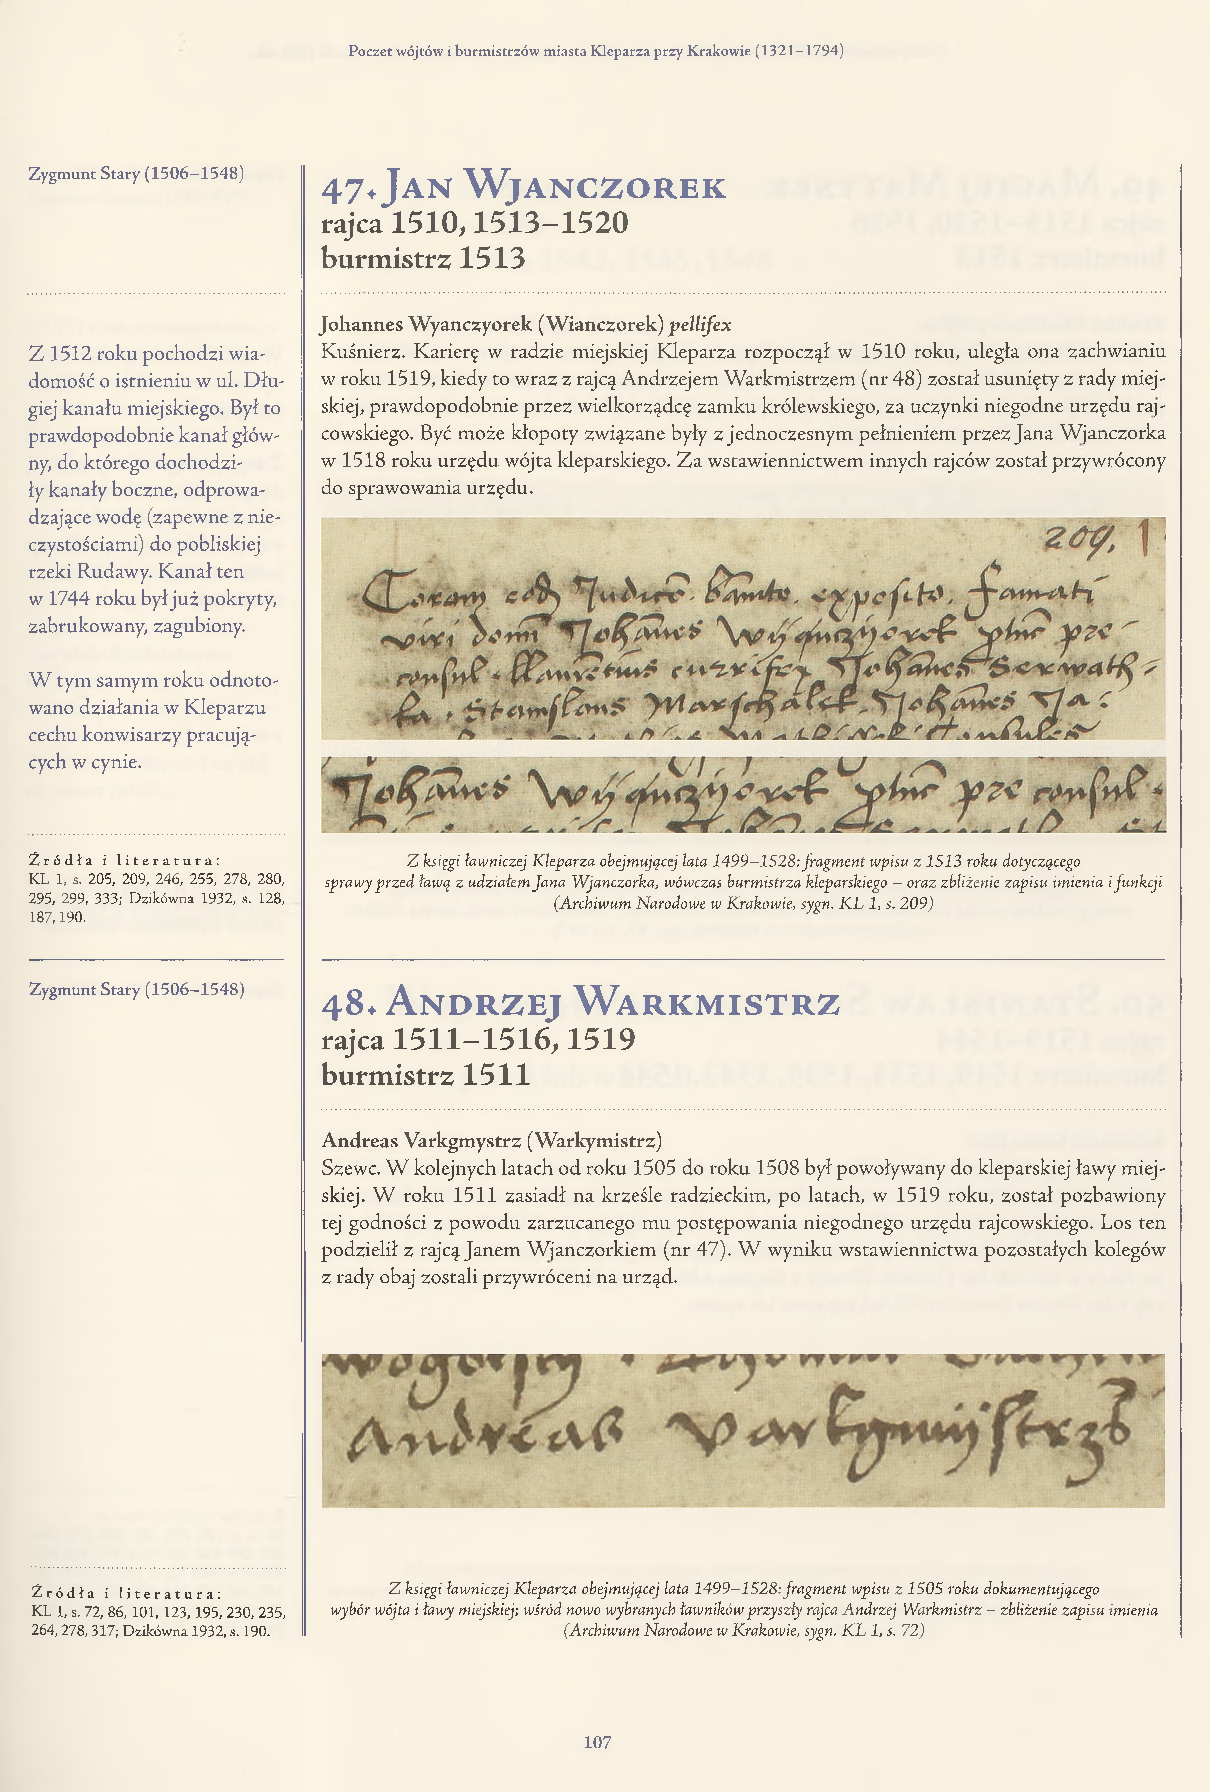 Poczet wójtów i burmistrzów miasta Kleparza przy Krakowie (1321–1794)
Zygmunt Stary (1506–1548)
Z 1512 roku pochodzi wia-
domość o istnieniu w ul. Dłu-
giej kanału miejskiego. Był to
prawdopodobnie kanał głów-
ny, do którego dochodzi-
ły kanały boczne, odprowa-
dzające wodę (zapewne z nie-
czystościami) do pobliskiej
rzeki Rudawy. Kanał ten
w 1744 roku był już pokryty,
zabrukowany, zagubiony.
W tym samym roku odnoto-
wano działania w Kleparzu
cechu konwisarzy pracują-
cych w cynie.
Źródła i literatura:
KL 1, s. 205, 209, 246, 255, 278, 280,
295, 299, 333; Dzikówna 1932, s. 128,
187, 190.
47. Jan Wjanczorek
rajca 1510, 1513–1520
burmistrz 1513
Johannes Wyanczyorek (Wianczorek) pellifex
Kuśnierz. Karierę w radzie miejskiej Kleparza rozpoczął w 1510 roku, uległa ona zachwianiu
w roku 1519, kiedy to wraz z rajcą Andrzejem Warkmistrzem (nr 48) został usunięty z rady miej-
skiej, prawdopodobnie przez wielkorządcę zamku królewskiego, za uczynki niegodne urzędu raj-
cowskiego. Być może kłopoty związane były z jednoczesnym pełnieniem przez Jana Wjanczorka
w 1518 roku urzędu wójta kleparskiego. Za wstawiennictwem innych rajców został przywrócony
do sprawowania urzędu.
209.
Coram eod Judicio exposito famati
viri domini Johanes Wyanczyorek pre
consul Laurentius currifex Johanes Serwath
ka Stanislaus Marschalek Johanes Ja
Johanes Wyanczyorek pre consul
Z księgi ławniczej Kleparza obejmującej lata 1499–1528: fragment wpisu z 1513 roku dotyczącego
sprawy przed ławą z udziałem Jana Wjanczorka, wówczas burmistrza kleparskiego – oraz zbliżenie zapisu imienia i funkcji
(Archiwum Narodowe w Krakowie, sygn. KL 1, s. 209)
Zygmunt Stary (1506–1548)
48. Andrzej Warkmistrz
rajca 1511–1516, 1519
burmistrz 1511
Andreas Varkgmystrz (Warkymistrz)
Szewc. W kolejnych latach od roku 1505 do roku 1508 był powoływany do kleparskiej ławy miej-
skiej. W roku 1511 zasiadł na krześle radzieckim, po latach, w 1519 roku, został pozbawiony
tej godności z powodu zarzucanego mu postępowania niegodnego urzędu rajcowskiego. Los ten
podzielił z rajcą Janem Wjanczorkiem (nr 47). W wyniku wstawiennictwa pozostałych kolegów
z rady obaj zostali przywróceni na urząd.
Andreas Varkgmystrz
Źródła i literatura:
KL 1, s. 72, 86, 101, 123, 195, 230, 235,
264, 278, 317; Dzikówna 1932, s. 190.
Z księgi ławniczej Kleparza obejmującej lata 1499–1528: fragment wpisu z 1505 roku dokumentującego
wybór wójta i ławy miejskiej; wśród nowo wybranych ławników przyszły rajca Andrzej Warkmistrz – zbliżenie zapisu imienia
(Archiwum Narodowe w Krakowie, sygn. KL 1, s. 72)
107